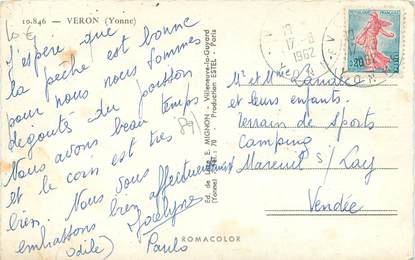 10.846 - VERON (Yonne)
10 €
J'espère que
la pêche est bonne
pour nous nous sommes
dégoutés du poisson
Nous avons beau temps
et le coin est très
bien. Nous vous
embrassons bien affectueusement
Jocelyne
Odile Paulo
(89)
Ed. de E. MIGNON - Villeneuve-la-Guyard
(Yonne) : 70 - Production ESTEL - Paris
ROMACOLOR
17-8
1962
Mr et Mme
et leurs enfants.
Terrain de sports
Camping
Mareuil s/ Lay
Vendée